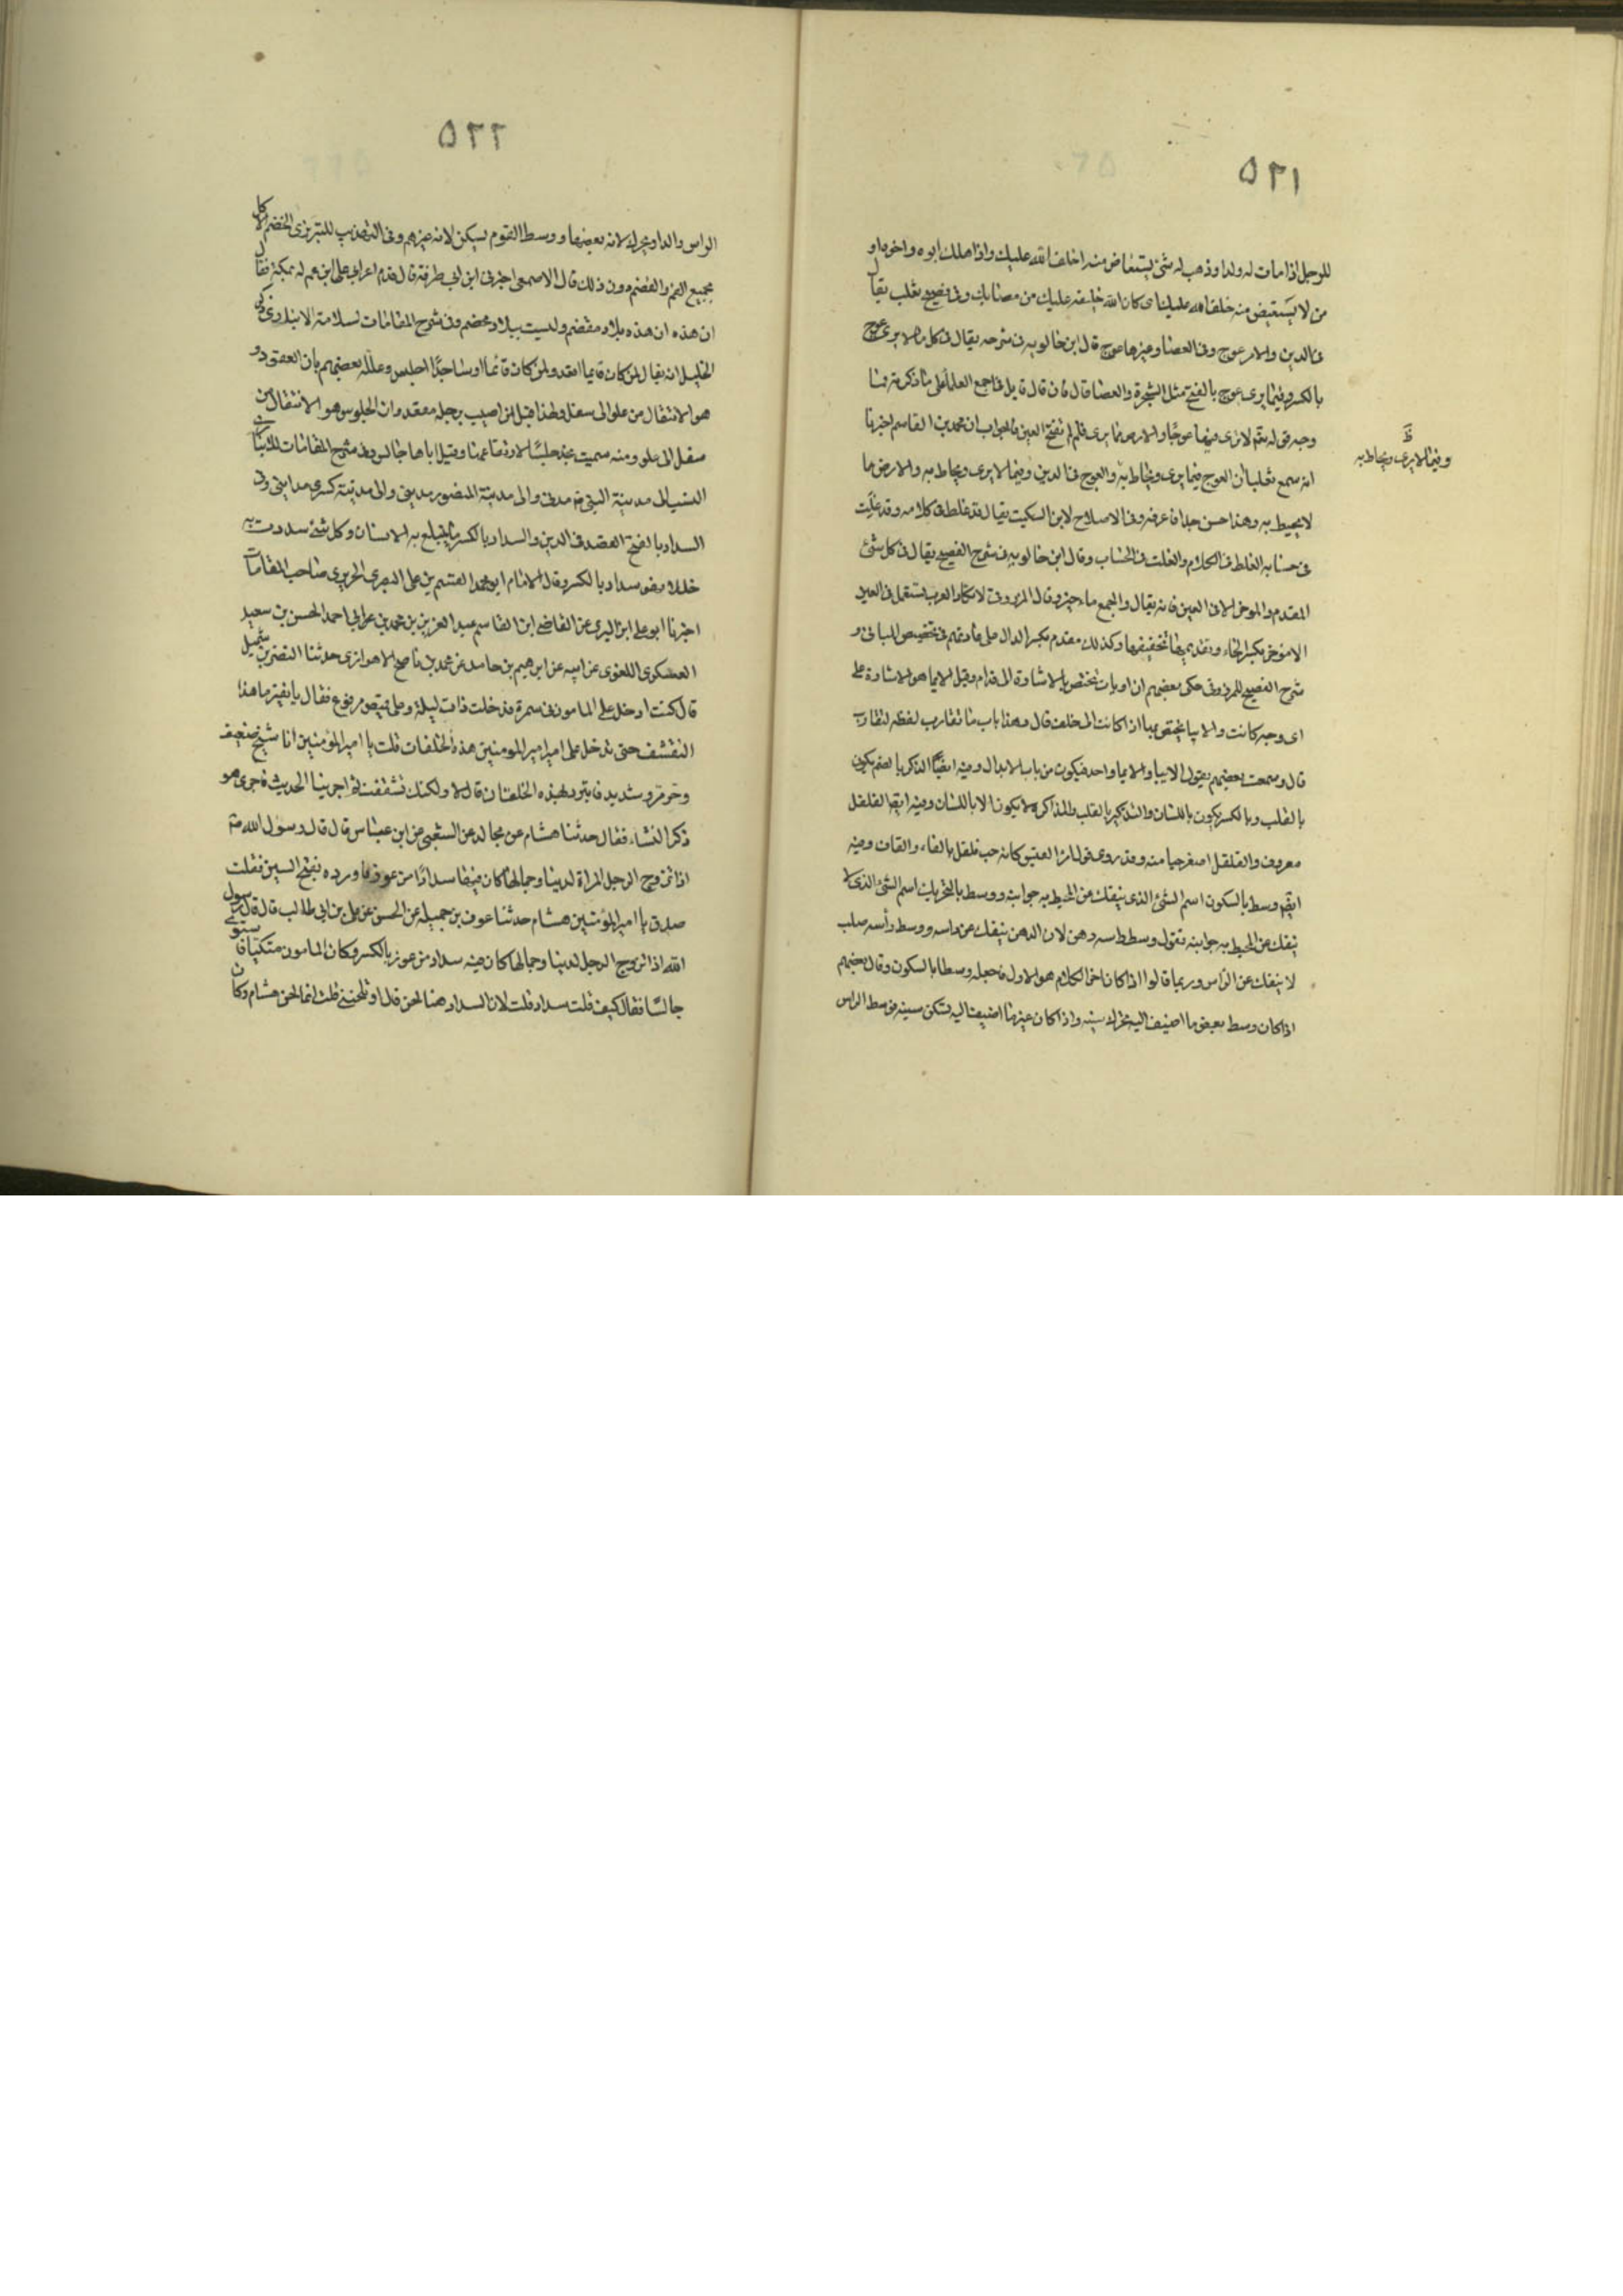 ٥٢١
للرجل اذا مات له ولد او ذهب له شئ يستعاض منه اخلف الله عليك واذا هلك ابوه واخوه او
من لا يستعيض منه خلف الله عليك اى كان الله خليفة عليك من مصابك وفى فصيح ثعلب يقال
فى الدين والامر عوج وفى العصا وغيرها عوج قال ابن خالويه فى شرحه يقال فى كل ما لا يرى عوج
بالكسر وفيما يرى عوج بالفتح مثل الشجرة والعصا قال فان قال قايل فاجمع العلما على ما ذكرته فما
وجه قوله تع لا ترى فيها عوجا والارض مما يرى فلم لم تفتح العين فالجواب ان محمد بن القاسم اخبرنا
انه سمع ثعلبا ان العوج فيما يرى ويحاط به والعوج فى الدين وفيما لا يرى ويحاط به والارض ما
ظ
وفيما لا يرى ويحاط به
لا يحيط به وهذا حسن جدا فاعرفه وفى الاصلاح لابن السكيت يقال قد غلط فى كلامه وقد غلت
فى حسابه الغلط فى الكلام والغلت فى الحساب وقال ابن خالويه فى شرح الفصيح يقال فى كل شئ
المقدم والموخر الا فى العين فانه يقال والجمع ماخير وقال المرزوقى لا تكاد العرب تستعمل فى العين
الا موخر بكسر الخاء وتخفيفها وكذلك مقدم بكسر الدال على عادتهم فى تخصيص المبانى و
شرح الفصيح للمرزوقى حكى بعضهم ان اوبات تختص بالاشارة الى قدام وقيل الايما هو الاشارة على
اى وجه كانت والايبا يختص بها اذا كانت الى خلف قال وهذا باب ما تقارب لفظه لتقارب
قال وسمعت بعضهم يقول الايبا والايما واحد فيكون من باب الابدال وفيه ايضا الذكر بالضم يكون
بالقلب وبالكسر يكون باللسان والتذكير بالقلب والمذاكرة لا يكون الا باللسان وفيه ايضا الفلفل
معروف والقلقل اصغر حبا منه وقد روى قول امرئ القيس كانه حب فلفل بالفاء والقاف وفيه
ايضا وسط بالسكون اسم الشئ الذى ينفك عن المحيط به جوانبه ووسط بالتحريك اسم الشئ الذى لا
ينفك عن المحيط به جوانبه تقول وسط راسه دهن لان الدهن ينفك عن راسه ووسط راسه صلب
لا ينفك عن الراس وربما قالوا اذا كان اخر الكلام هو الاول فاجعله وسطا بالسكون وقال بعضهم
اذا كان وسط بعض ما اضيف اليه تحرك سينه واذا كان غير ما اضيف اليه تسكن سينه فوسط الراس
٥٢٢
الراس والدار يحرك لانه بعضها ووسط القوم يسكن لانه غيرهم وفى التهذيب للتبريزى الخضم الاكل
بجميع الفم والقضم دون ذلك قال الاصمعى اخبرنى ابن ابى طرفة قال قدم اعرابى على ابن عم له بمكة فقال
ان هذه ان هذه بلاد مقضم وليست ببلاد مخضم وفى شرح المقامات لسلامة الانبارى ذكر
الخليل انه يقال لمن كان قايما اقعد ولمن كان نائما او ساجدا اجلس وعلله بعضهم بان القعود
هو الانتقال من علو الى سفل ولهذا قيل لمن اصيب برجله مقعد وان الجلوس هو الانتقال من
سفل الى علو ومنه سميت نجد جلسا لارتفاعها وقيل لمن اتاها جالس وفى شرح المقامات للانبارى
النسب الى مدينة النبى مدنى والى مدينة المنصور مدينى والى مدينة كسرى مداينى وفى
السداد بالفتح القصد فى الدين والسداد بالكسر ما يتبلغ به الانسان وكل شئ سددت به
خللا فهو سداد بالكسر وقال الامام ابو محمد القسم بن على البصرى الحريرى صاحب المقامات
اخبرنا ابو على ابن التسترى عن القاضى ابن القاسم عبد العزيز بن محمد بن عن ابى احمد الحسن بن سعيد
العسكرى اللغوى عن ابيه عن ابرهيم بن حامد عن محمد بن ناصح الاهوازى حدثنا النضر بن شميل
قال كنت ادخل على المامون فى سمره فدخلت ذات ليلة وعلى قميص مرقوع فقال يا نضر ما هذا
التقشف حتى تدخل على امير المومنين هذه الخلقات قلت يا امير المؤمنين انا شيخ ضعيف
وحر مرو شديد فاتبرد بهذه الخلقان قال لا ولكنك تقشفت ثم اجرينا الحديث فاجرى هو
ذكر النساء فقال حدثنا هشام عن مجالد عن الشعبى عن ابن عباس قال قال رسول الله ص
اذا تزوج الرجل المراة لدينها وجمالها كان فيها سدادا من عوز فاورده بفتح السين فقلت
صدق يا امير المؤمنين هشام حدثنا عوف بن جميله عن الحسن عن على بن ابى طالب قال قال رسول
الله اذا تزوج الرجل لدينها وجمالها كان فيه سداد من عوز بالكسر وكان المامون متكيا فاستوى
جالسا فقال كيف قلت سداد قلت لان السداد هنا لحن قال او تلحننى قلت انما لحن هشام وكان